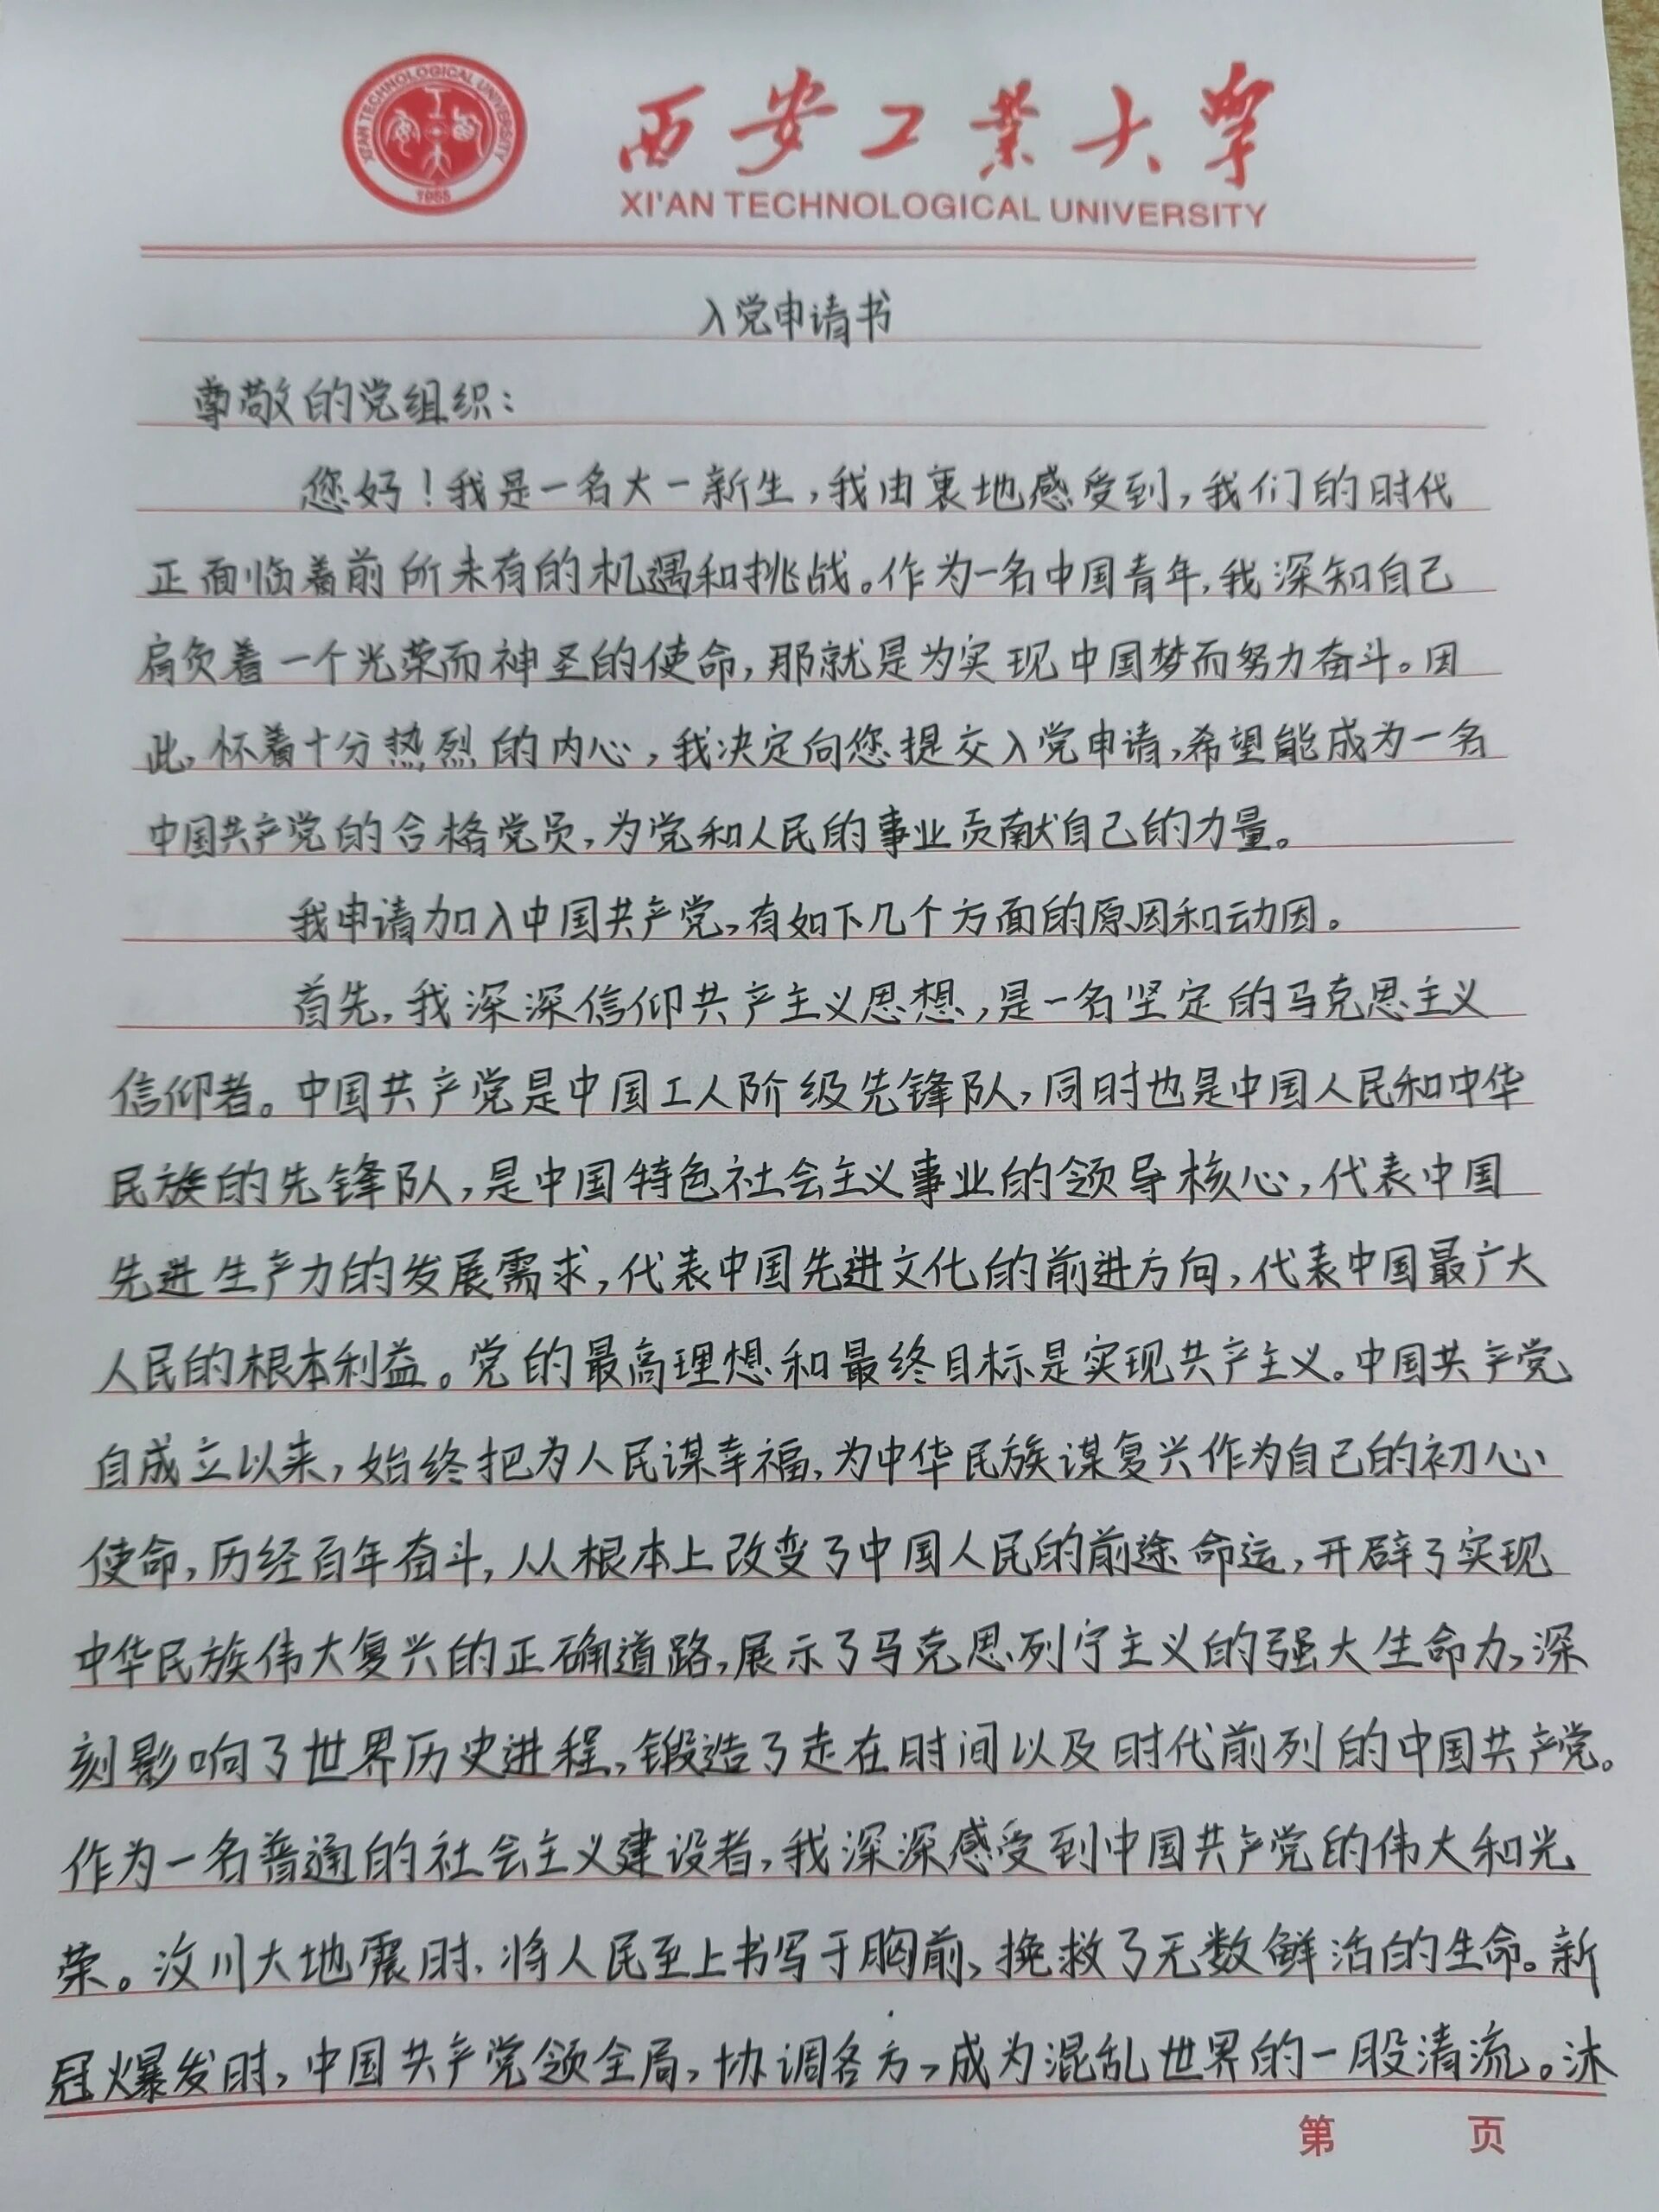 XI'AN TECHNOLOGICAL UNIVERSITY
1955
西安工业大学
XI'AN TECHNOLOGICAL UNIVERSITY
入党申请书
尊敬的党组织：
您好！我是一名大一新生，我由衷地感受到，我们的时代
正面临着前所未有的机遇和挑战。作为一名中国青年，我深知自己
肩负着一个光荣而神圣的使命，那就是为实现中国梦而努力奋斗。因
此，怀着十分热烈的内心，我决定向您提交入党申请，希望能成为一名
中国共产党的合格党员，为党和人民的事业贡献自己的力量。
我申请加入中国共产党，有如下几个方面的原因和动因。
首先，我深深信仰共产主义思想，是一名坚定的马克思主义
信仰者。中国共产党是中国工人阶级先锋队，同时也是中国人民和中华
民族的先锋队，是中国特色社会主义事业的领导核心，代表中国
先进生产力的发展需求，代表中国先进文化的前进方向，代表中国最广大
人民的根本利益。党的最高理想和最终目标是实现共产主义。中国共产党
自成立以来，始终把为人民谋幸福，为中华民族谋复兴作为自己的初心
使命，历经百年奋斗，从根本上改变了中国人民的前途命运，开辟了实现
中华民族伟大复兴的正确道路，展示了马克思列宁主义的强大生命力，深
刻影响了世界历史进程，锻造了走在时间以及时代前列的中国共产党。
作为一名普通的社会主义建设者，我深深感受到中国共产党的伟大和光
荣。汶川大地震时，将人民至上书写于胸前，挽救了无数鲜活的生命。新
冠爆发时，中国共产党领全局，协调各方，成为混乱世界的一股清流。沐
第 页